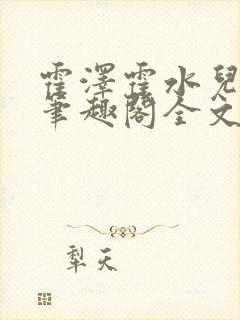 霍泽霍水儿
笔趣阁全文
犁天